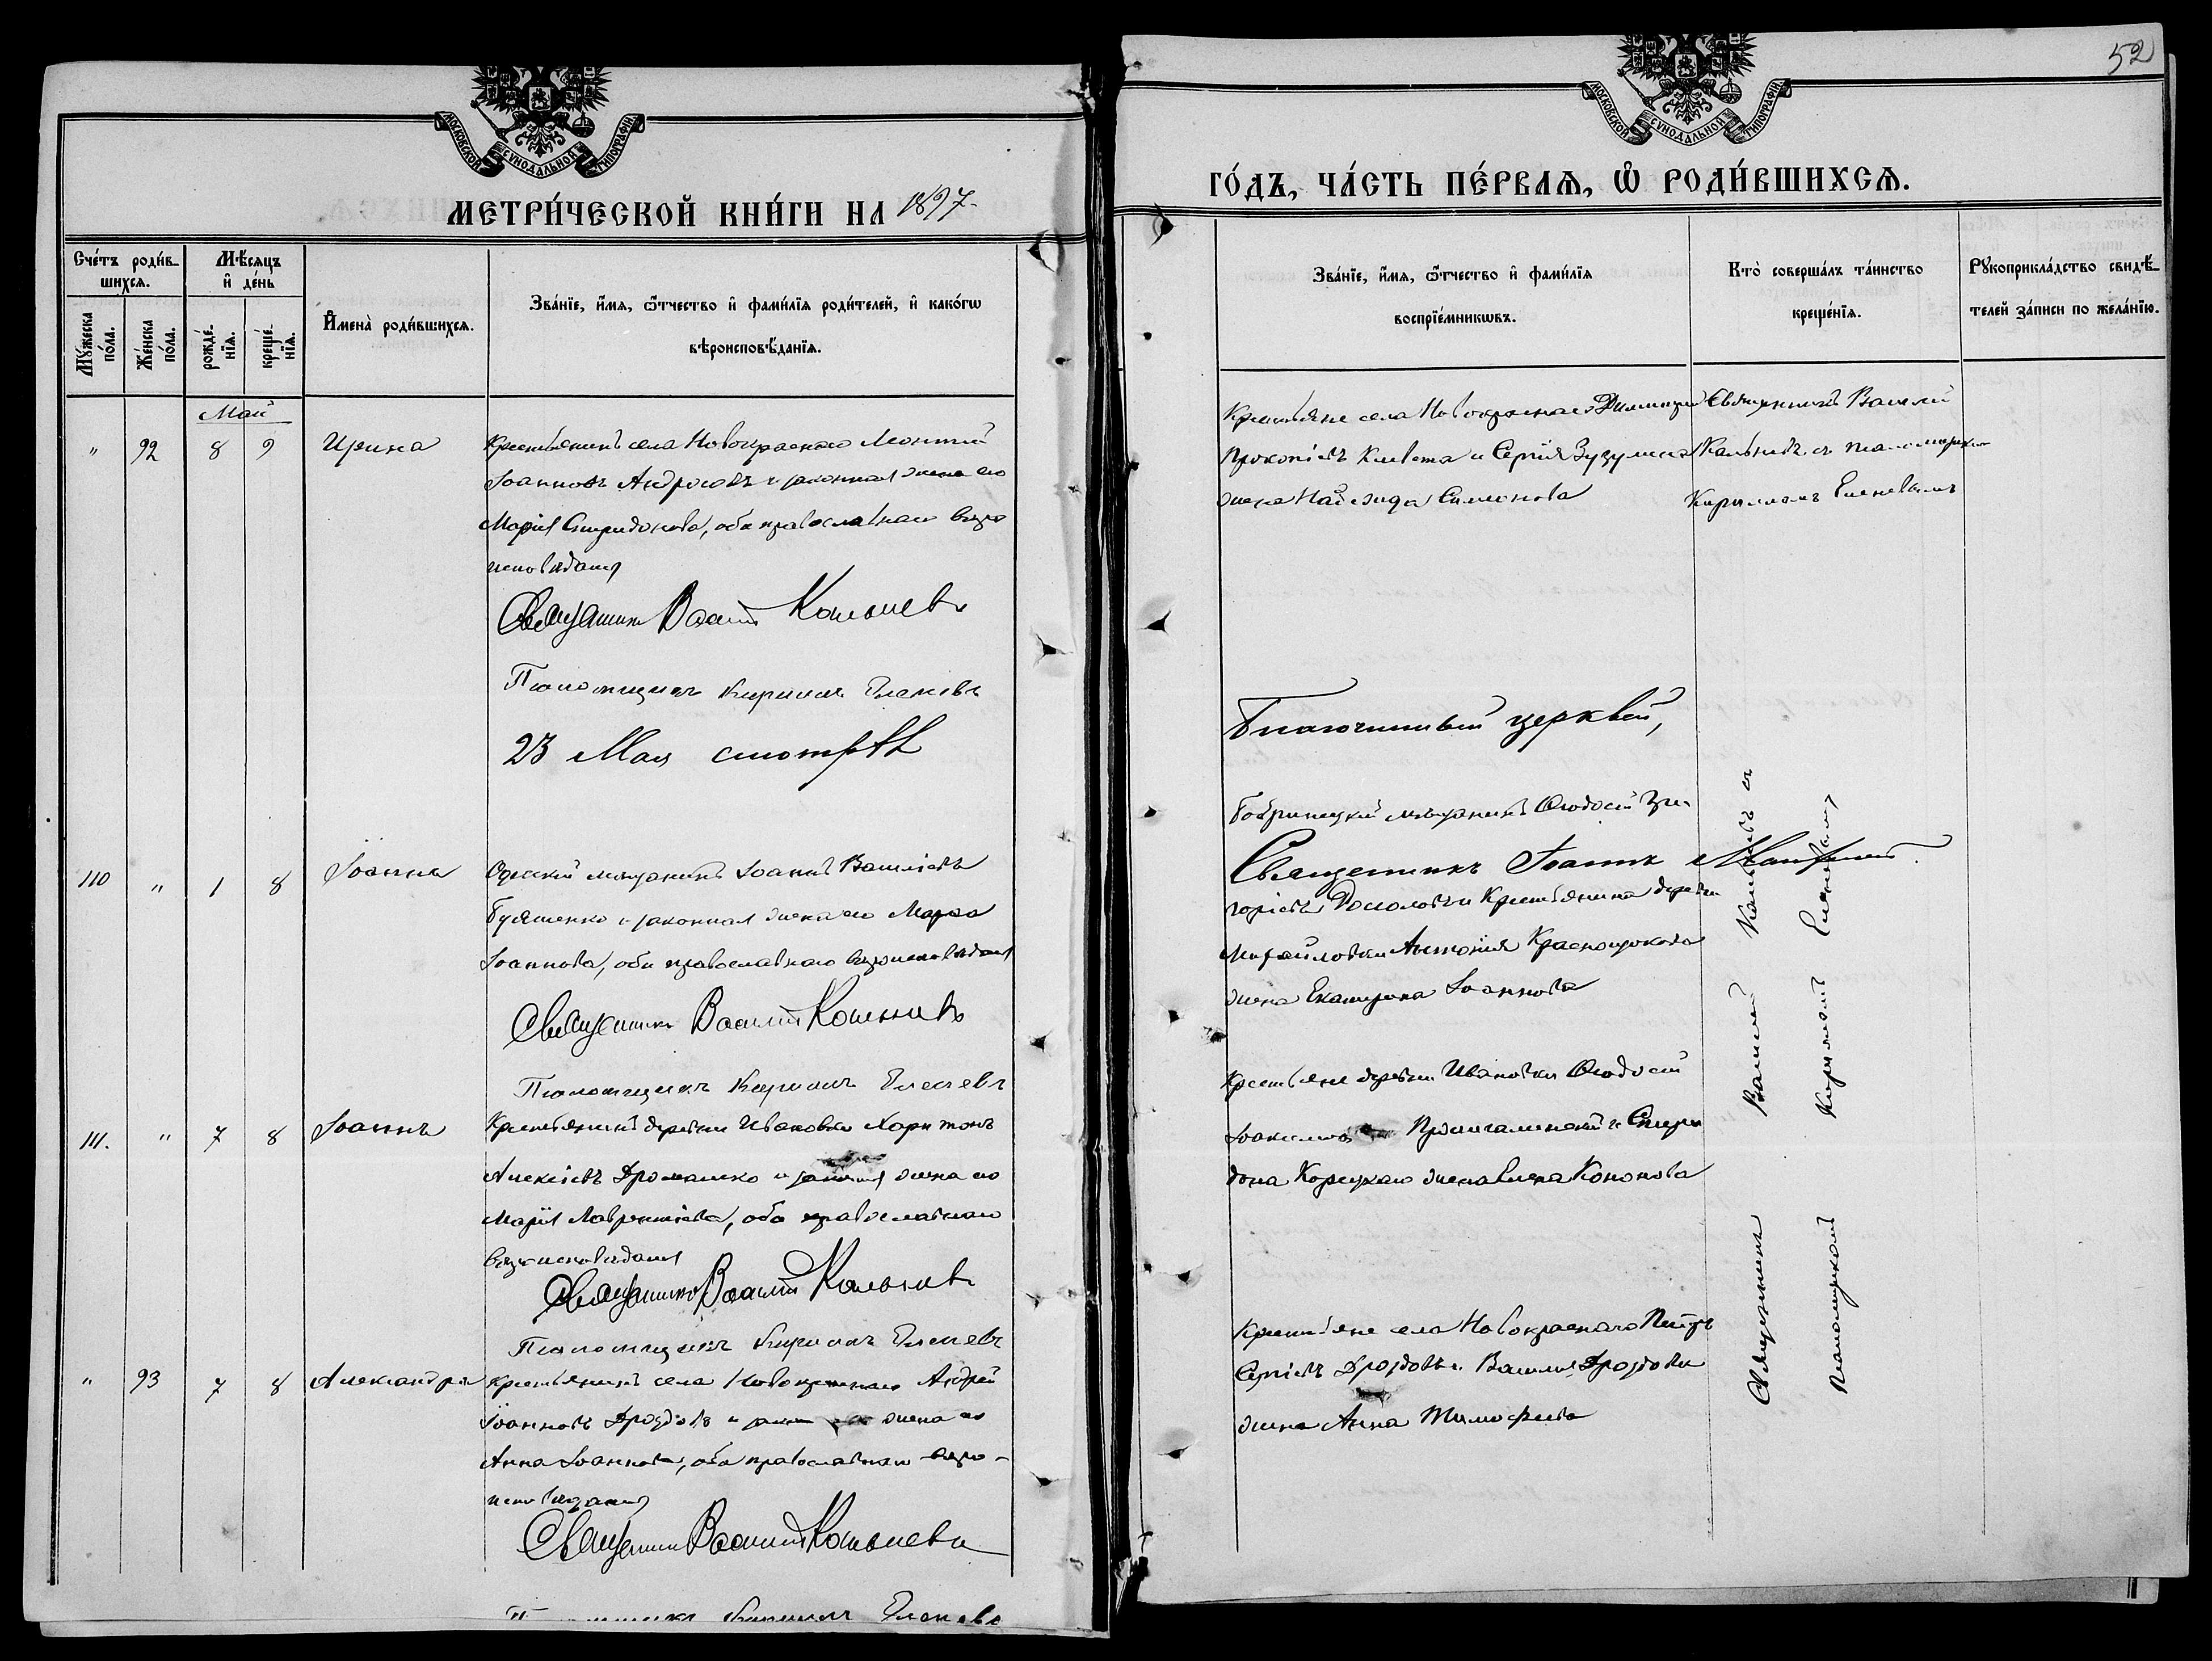 МОСКОВСКОЙ СѴНОДАЛЬНОЙ ТИПОГРАФІИ
МЕТРИ́ЧЕСКОЙ КНИ́ГИ НА 1897
Сче́тъ роди́в-
шихся.
Мѣ́сяцъ
и҆ де́нь
Мꙋ́жеска по́ла.
Же́нска по́ла.
рожде́-
нїя.
креще́-
нїя.
И҆мена̀ роди́вшихся.
Зва́нїе, и҆́мя, ѻ҆́тчество и҆ фами́лїя роди́телей, и҆ како́гѡ
вѣроисповѣ́данїя.
Май
" 92 8 9 Ирина Крестьянинъ села Новокраснаго Леонтій
Іоанновъ Андросовъ и законная жена его
Марія Спиридонова, оба православнаго вѣро
исповѣданія
Священникъ Василій Кольневъ
Псаломщикъ Кириллъ Еленевъ
23 Мая смотрѣлъ
110 " 1 8 Іоаннъ Одесскій мѣщанинъ Іоаннъ Васильевъ
и законная жена его Марѳа
Іоаннова, оба православнаго вѣроисповѣданія
Священникъ Василій Кольневъ
Псаломщикъ Кириллъ Еленевъ
111. " 7 8 Іоаннъ Крестьянинъ деревни Ивановки Харитонъ
Алексіевъ и законная жена его
Марія Лаврентіева, оба православнаго
вѣроисповѣданія
Священникъ Василій Кольневъ
Псаломщикъ Кириллъ Еленевъ
" 93 7 8 Александра Крестьянинъ села Новокраснаго Андрей
Іоанновъ Дроздовъ и жена его
Анна Іоаннова, оба православнаго вѣро-
исповѣданія
Священникъ Василій Кольневъ
Кириллъ Еленевъ
52
МОСКОВСКОЙ СѴНОДАЛЬНОЙ ТИПОГРАФІИ
ГО́ДЪ, ЧА́СТЬ ПЕ́РВАЯ, Ѡ҆ РОДИ́ВШИХСЯ.
Зва́нїе, и҆́мя, ѻ҆́тчество и҆ фами́лїя
воспрїе́мникѡвъ.
Кто̀ соверша́лъ та́инство
креще́нїя.
Рꙋкоприкла́дство свидѣ́-
телей за́писи по жела́нїю.
Крестьяне села Новокраснаго Димитрій
Прокопіевъ Клевета и Сергія Зузулина
жена Надежда Симонова
Священникъ Василій
Кольневъ съ псаломщикомъ
Кирилломъ Еленевымъ
Благочинный церквей,
Бобринецкій мѣщанинъ Ѳеодосій Гри-
Священникъ Іоаннъ
горіевъ и Крестьянина деревни
Михайловки Антонія Краснощокова
жена Екатерина Іоаннова
Крестьяне деревни Ивановки Ѳеодосій
Іоакимовъ и Спири
дона Корецкаго жена Елена Кононова
Крестьяне села Новокраснаго Петръ
Сергіевъ Дроздовъ и Василія Дроздова
жена Анна Тимофеева
Священникъ Василій Кольневъ съ
псаломщикомъ Кирилломъ Еленевымъ